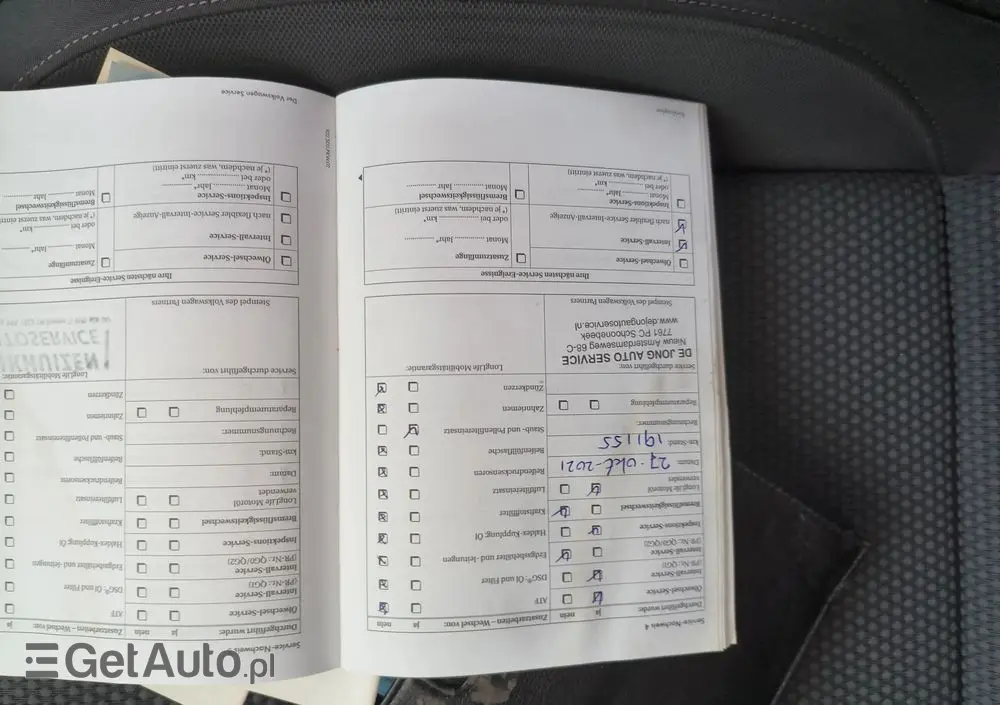 Service-Nachweis 4
Durchgeführt wurde:
ja
nein
Ölwechsel-Service
Intervall-Service
(PR-Nr.: QG1)
Intervall-Service
(PR-Nr.: QG0/QG2)
Inspektions-Service
Bremsflüssigkeitswechsel
LongLife Motoröl
verwendet
Datum: 27. okt-2021
km-Stand: 191155
Rechnungsnummer:
Reparaturempfehlung
Service durchgeführt von:
DE JONG AUTO SERVICE
Nieuw Amsterdamseweg 68-C
7761 PC Schoonebeek
www.dejongautoservice.nl
Stempel des Volkswagen Partners
Zusatzarbeiten – Wechsel von:
ja
nein
ATF
DSG® Öl und Filter
Erdgasbehälter und -leitungen
Haldex-Kupplung: Öl
Kraftstofffilter
Luftfiltereinsatz
Reifendrucksensoren
Reifenfüllflasche
Staub- und Pollenfiltereinsatz
Zahnriemen
Zündkerzen
LongLife Mobilitätsgarantie:
Ihre nächsten Service-Ereignisse
Ölwechsel-Service
Intervall-Service
nach flexibler Service-Intervall-Anzeige
Inspektions-Service
Monat Jahr*
oder bei km*
(* je nachdem, was zuerst eintritt)
Zusatzumfänge
Monat Jahr*
oder bei km*
(* je nachdem, was zuerst eintritt)
Bremsflüssigkeitswechsel
Monat Jahr
Service-Nachweis
Durchgeführt wurde:
ja
nein
Ölwechsel-Service
Intervall-Service
(PR-Nr.: QG1)
Intervall-Service
(PR-Nr.: QG0/QG2)
Inspektions-Service
Bremsflüssigkeitswechsel
LongLife Motoröl
verwendet
Datum:
km-Stand:
Rechnungsnummer:
Reparaturempfehlung
Service durchgeführt von:
Stempel des Volkswagen Partners
Zusatzarbeiten – Wechsel von:
ja
ATF
DSG® Öl und Filter
Erdgasbehälter und -leitungen
Haldex-Kupplung: Öl
Kraftstofffilter
Luftfiltereinsatz
Reifendrucksensoren
Reifenfüllflasche
Staub- und Pollenfiltereinsatz
Zahnriemen
Zündkerzen
LongLife Mobilitätsgarantie:
Ihre nächsten Service-Ereignisse
Ölwechsel-Service
Intervall-Service
nach flexibler Service-Intervall-Anzeige
Inspektions-Service
Monat Jahr*
oder bei km*
(* je nachdem, was zuerst eintritt)
Zusatzumfänge
Monat Jahr*
oder bei km*
(* je nachdem, was zuerst eintritt)
Bremsflüssigkeitswechsel
Monat Jahr
Der Volkswagen Service
GetAuto.pl